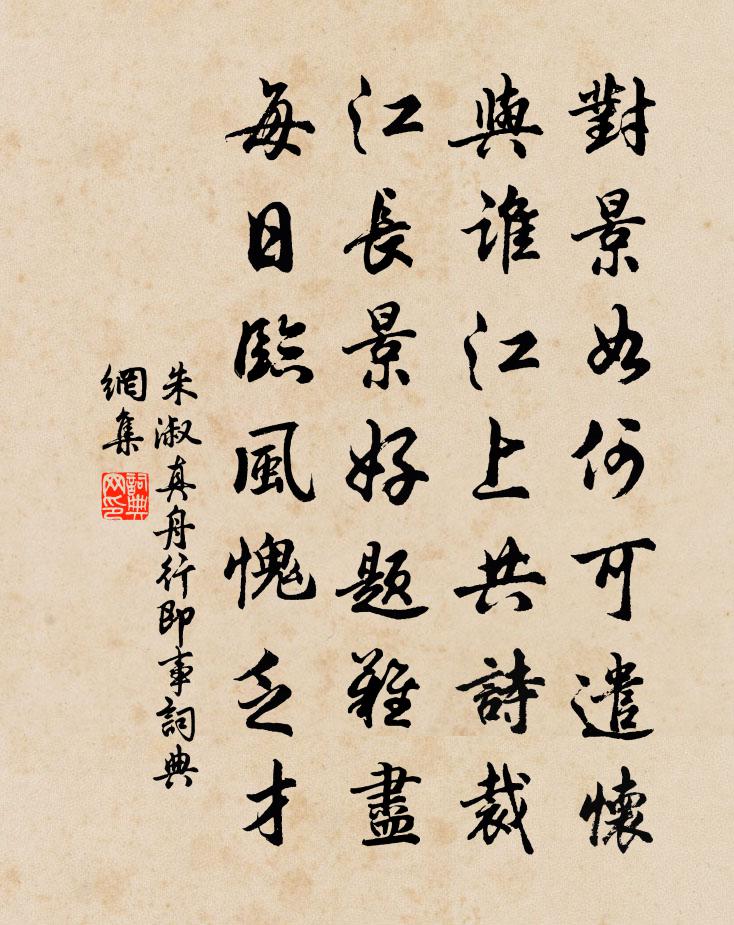 對景如何可遣懷
與誰江上共詩裁
江長景好题難盡
每日臨風愧乏才
朱淑真舟行即事詞典
網集
詞典
网印